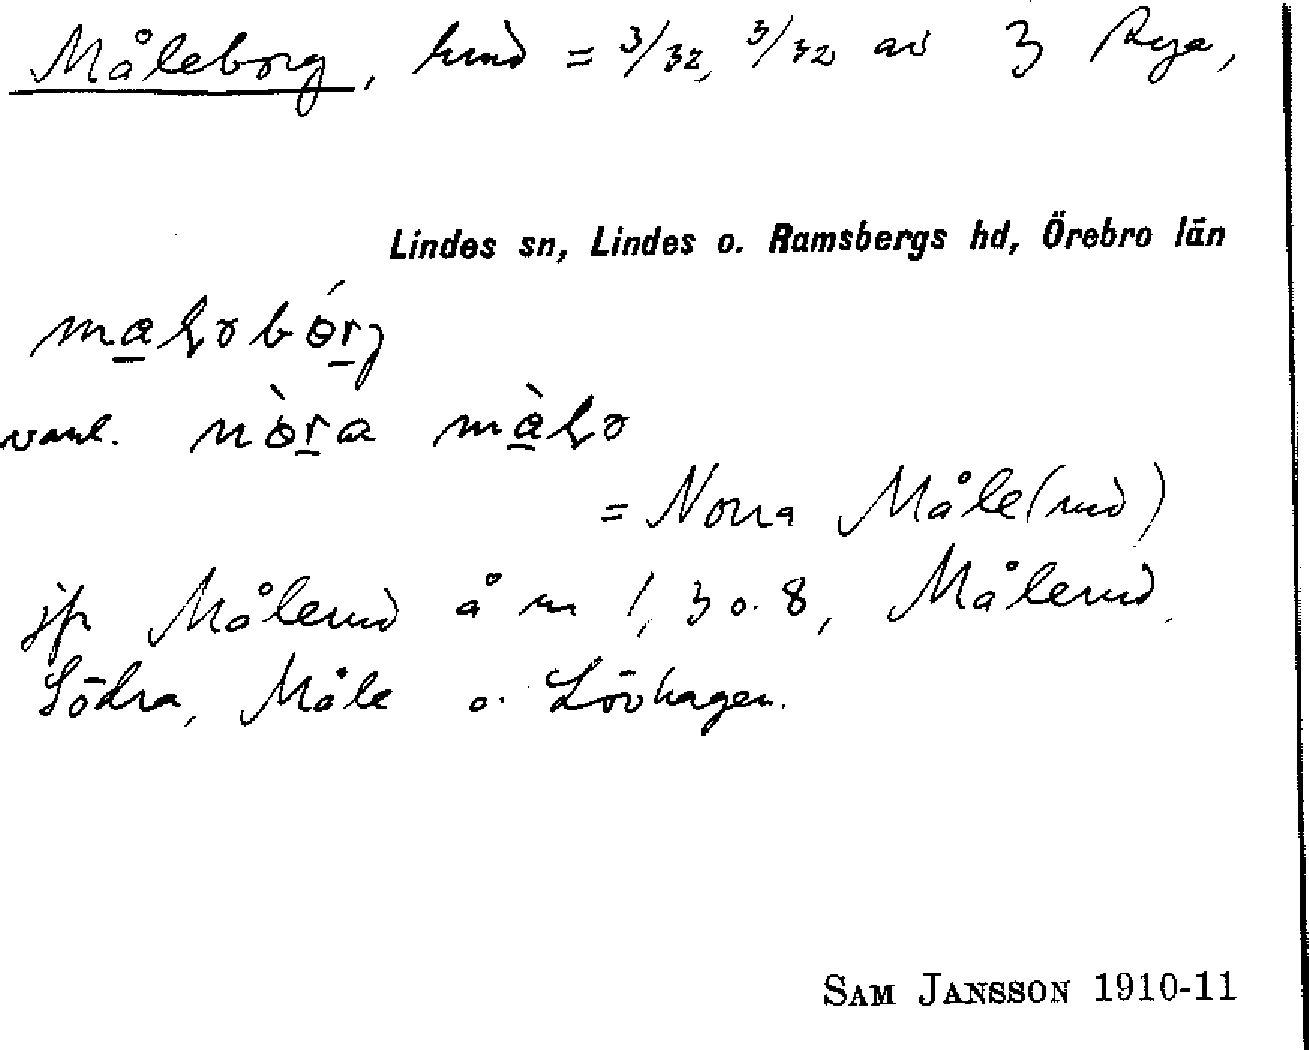 Måleborg, hmd = 3/32, 3/32 av 3 Rya,
Lindes sn, Lindes o. Ramsbergs hd, Örebro län
vanl.
= Norra Måle(rud)
jfr Målerud å nr 1, 3 o. 8, Målerud
Södra, Måle o. Lövhagen.
SAM JANSSON 1910-11